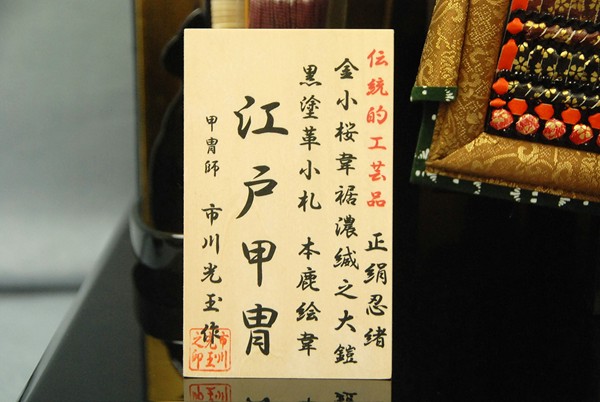 伝統的工芸品 正絹忍緒
金小桜韋裾濃縅之大鎧
黒塗革小札 本鹿絵韋
江戸甲冑
甲冑師 市川光玉作
市川光玉之印